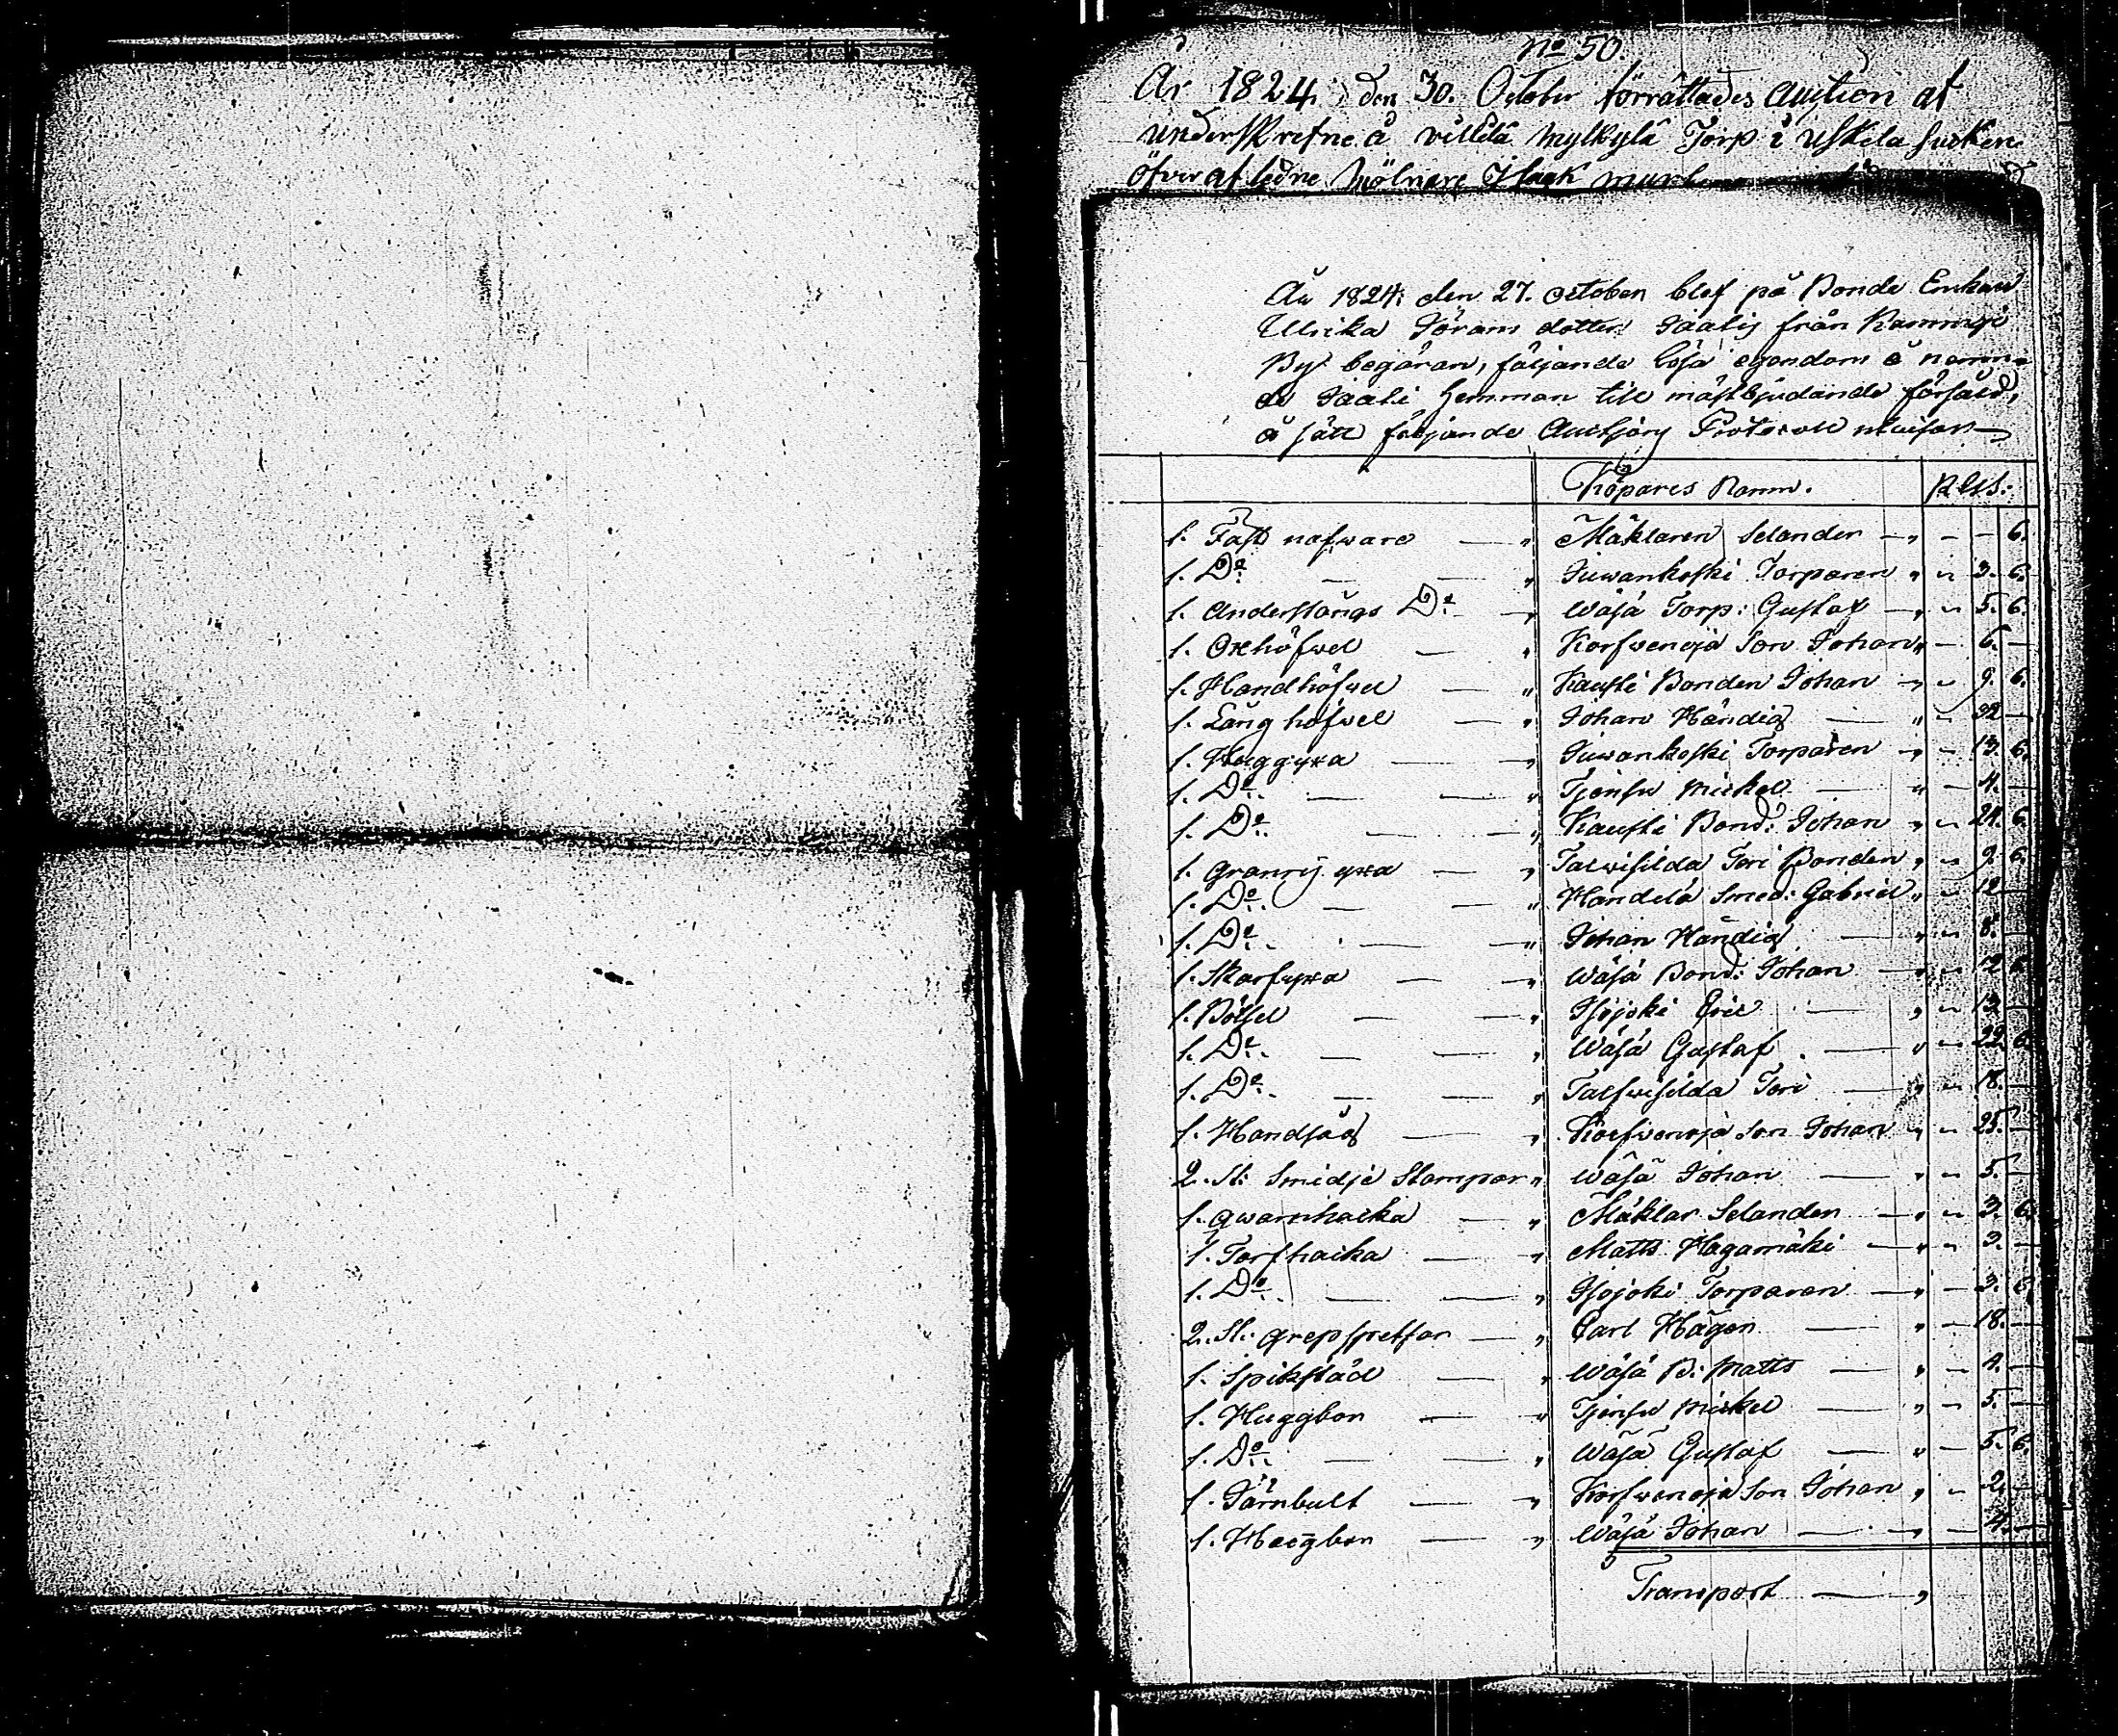 No 50.
År 1824 den 30. October förrättades Auction af
underskrefne å villilä Mylkylä Torp i Uskela Socken
öfver afledne Mölnare Isaak
År 1824 den 27. October blef på Bonde Enkan
Ulrika Jörans dotter Saalis från
By begäran, följande lösa egendom å namn-
de Saali Hemman till mästbjudande försåld,
å sätt följande Auctions Protocoll utvisar
Köpares Namn. R Css:
1. Fast nafware — " Mäklaren Selander — " - - 6.
1. Do — — " Juwankoski Torparen " " 3. 6.
1. Anderstångs Do — " Wäsä Torp: Gustaf — " 5. 6.
1. Oxhöfwel — " Korfwenoja Son Johan " — 6. —
1. Handhöfwel — " Kausti Bonden Johan — " 9. 6.
1. Lång höfwel — " Johan Händig — " " 32 —
1. Huggyxa — " Juwankoski Torparen — " - 13. 6.
1. Do — — " Tjensw Mickel — " — 4. —
1. Do — — " Kausti Bond: Johan " " 21. 6.
1. Granrij yxa — " Talwisilda Teri Bonden " " 9. 6.
1. Do — — " Handelä Smed: Gabriel " " 12 —
1. Do — — " Johan Händig — " " 8. —
1. Skarfyxa — — " Wäsä Bond: Johan — " " 12 6.
1. Bötsel — — " Isojoki Eric — " " 13. —
1. Do — — " Wäsä Gustaf — " " 22. 6.
1. Do — — " Talfwisilda Teri — " " 18. —
1. Handsåg — " Korfwenoja Son Johan " " 25. —
2. St: Smidje Stampar " Wäsä Johan — " " 5. —
1. qwarnhacka — " Mäklar Selander — " " 3. 6.
1. Torfhacka — " Matts Hagamäki — " " 3. —
1. Do — — " Isojoki Torparen — " — 3. 6.
2. St: grepspretsar — " Carl Hägen — " — 18. —
1. Spikstäd — " Wäsä B: Matts — " —
1. Huggbor — " Tjensw Mickel — " — 5. —
1. Do — — " Wäsä Gustaf — " — 5. 6.
1. Järnbult — " Korfwenoja Son Johan " — 2. —
1. — " Wäsä Johan — " — 4. —
Transport — "